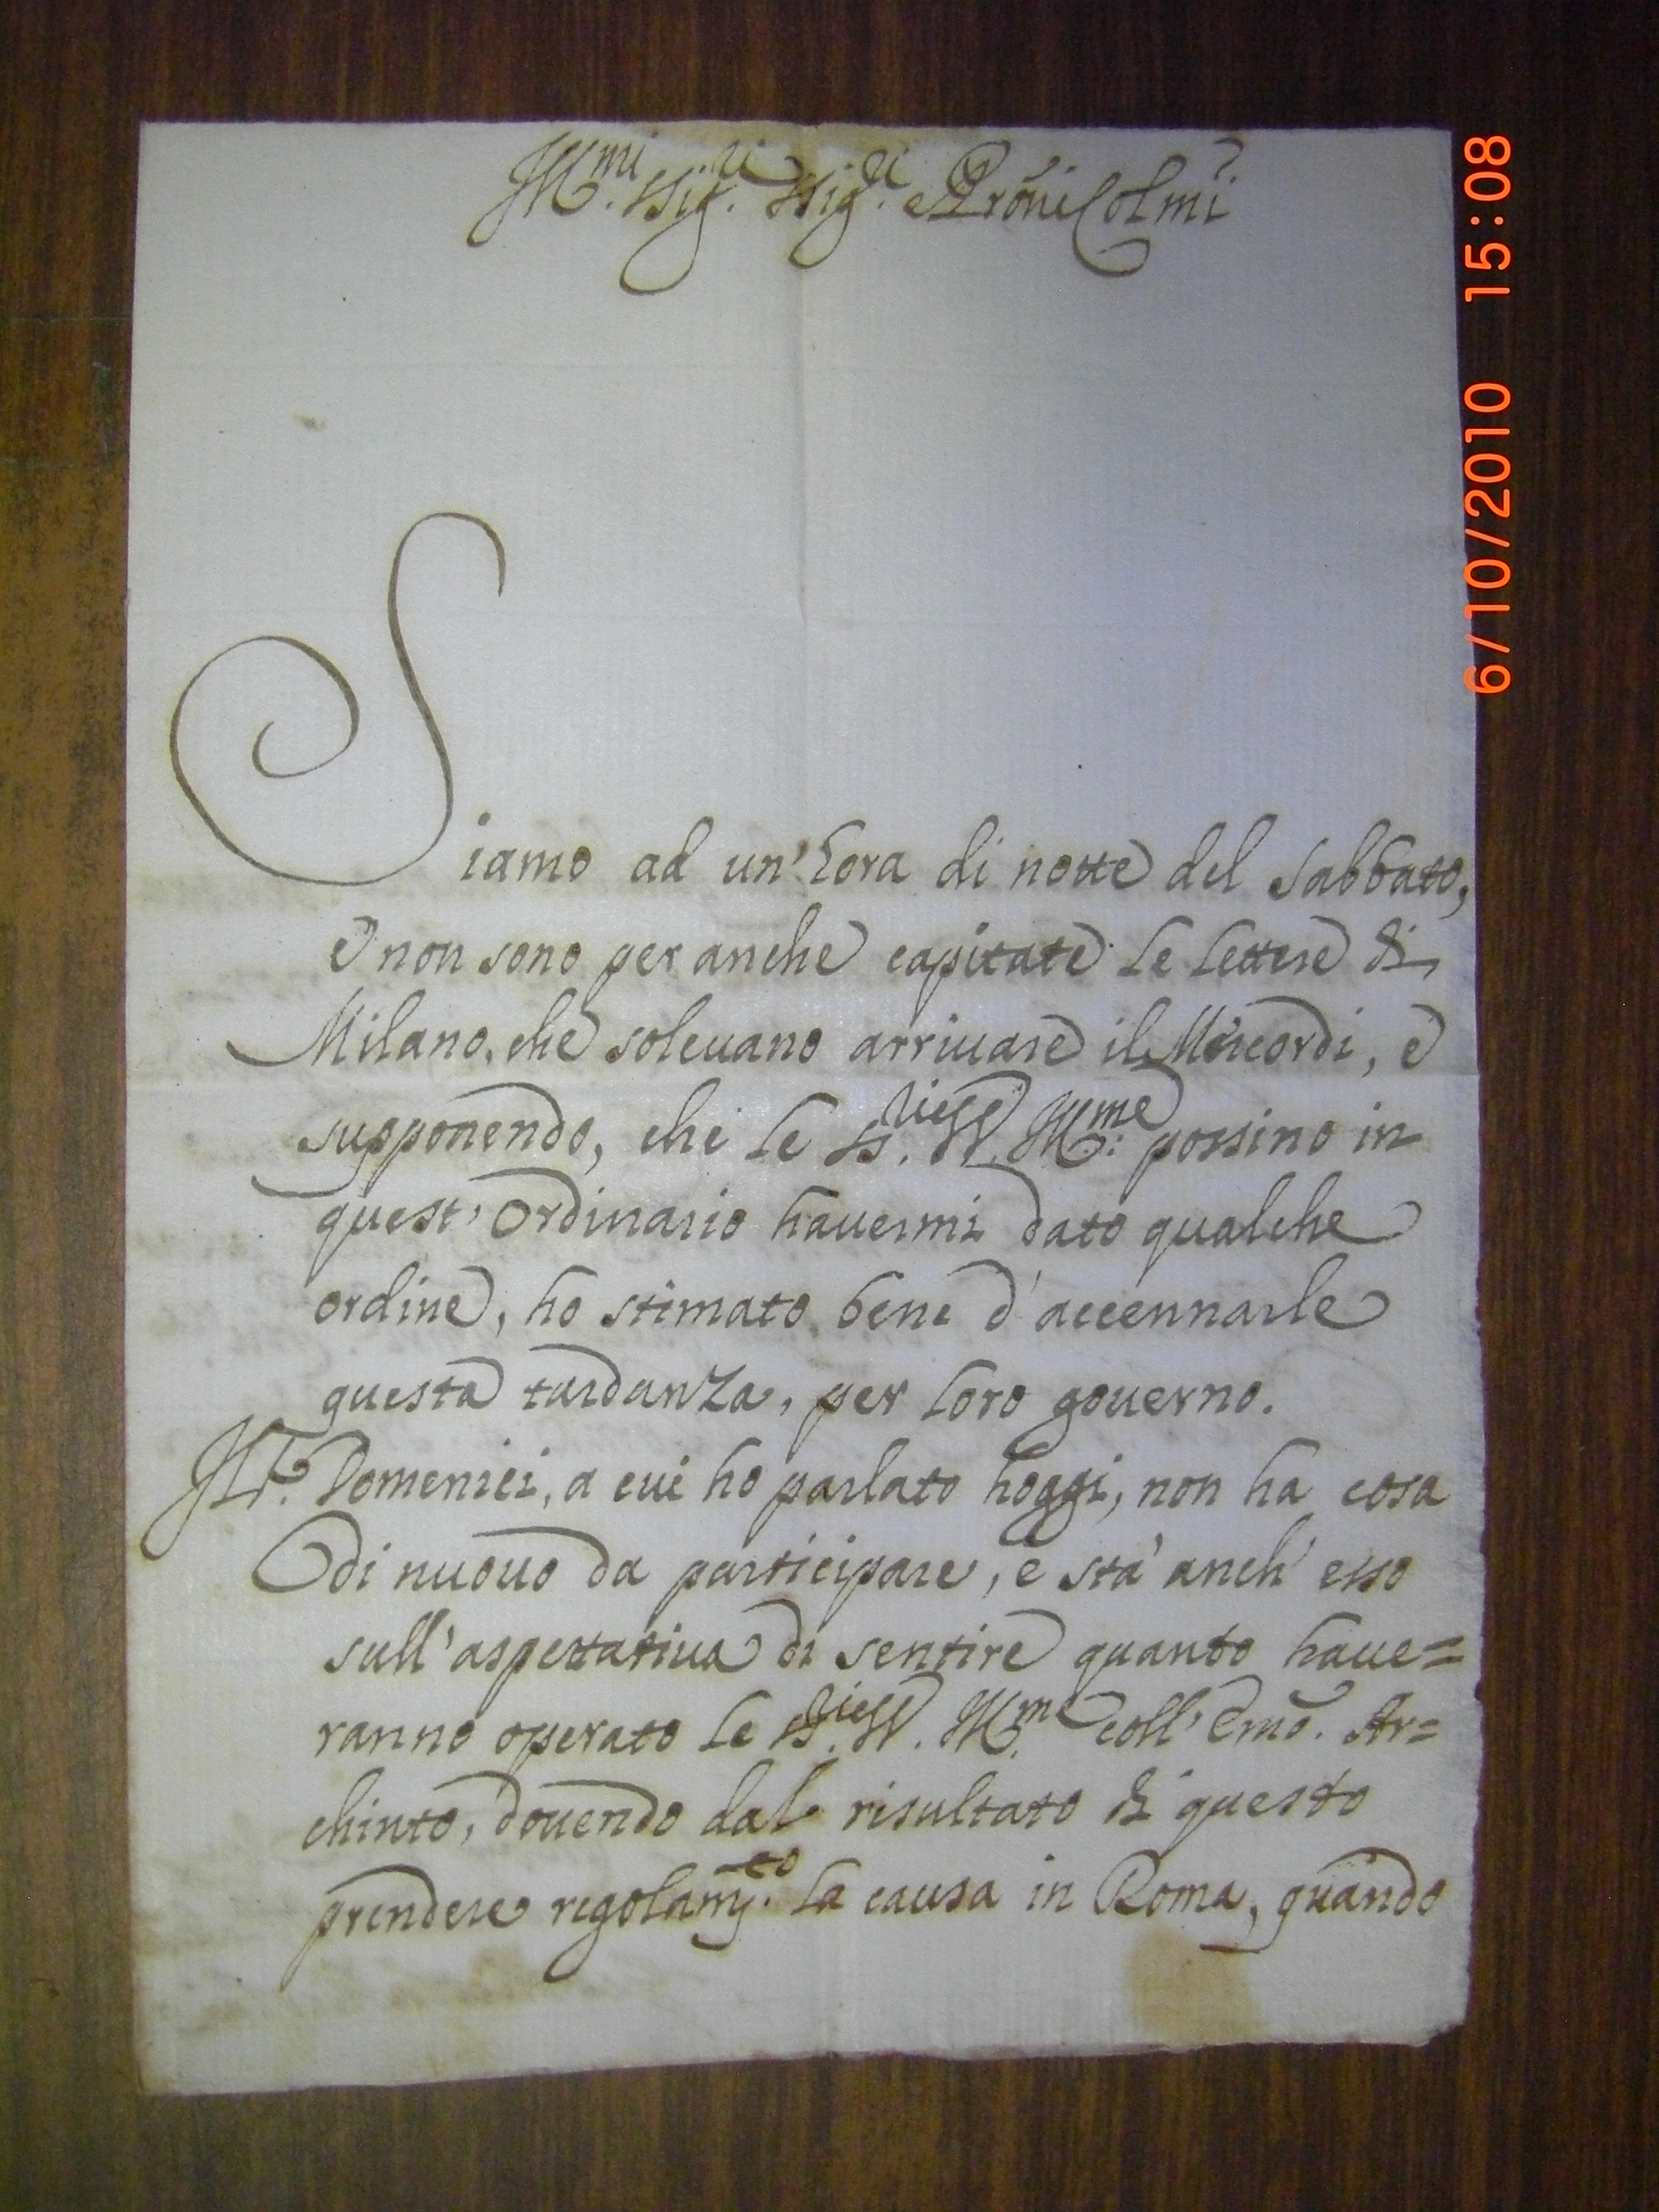 Ill.mi Sig.ri Sig.ri e Prõni Colmi
Siamo ad un' hora di notte del Sabbato,
e non sono per anche capitate le lettere di
Milano, che soleuano arriuare il Mercordi, e
supponendo, che le SS.rie VV. Ill.me possino in
quest' Ordinario hauermi dato qualche
ordine, ho stimato bene d'accennarle
questa tardanza, per loro gouerno.
Il P. Domenici, a cui ho parlato hoggi, non ha cosa
di nuouo da participare, e stà anch' esso
sull' aspettatiua di sentire quanto haue=
ranno operato le SS.rie VV. Ill.me coll' Emõ. Ar=
chinto, douendo dal risultato di questo
prendere regolam.to la causa in Roma, quando
6/10/2010 15:08